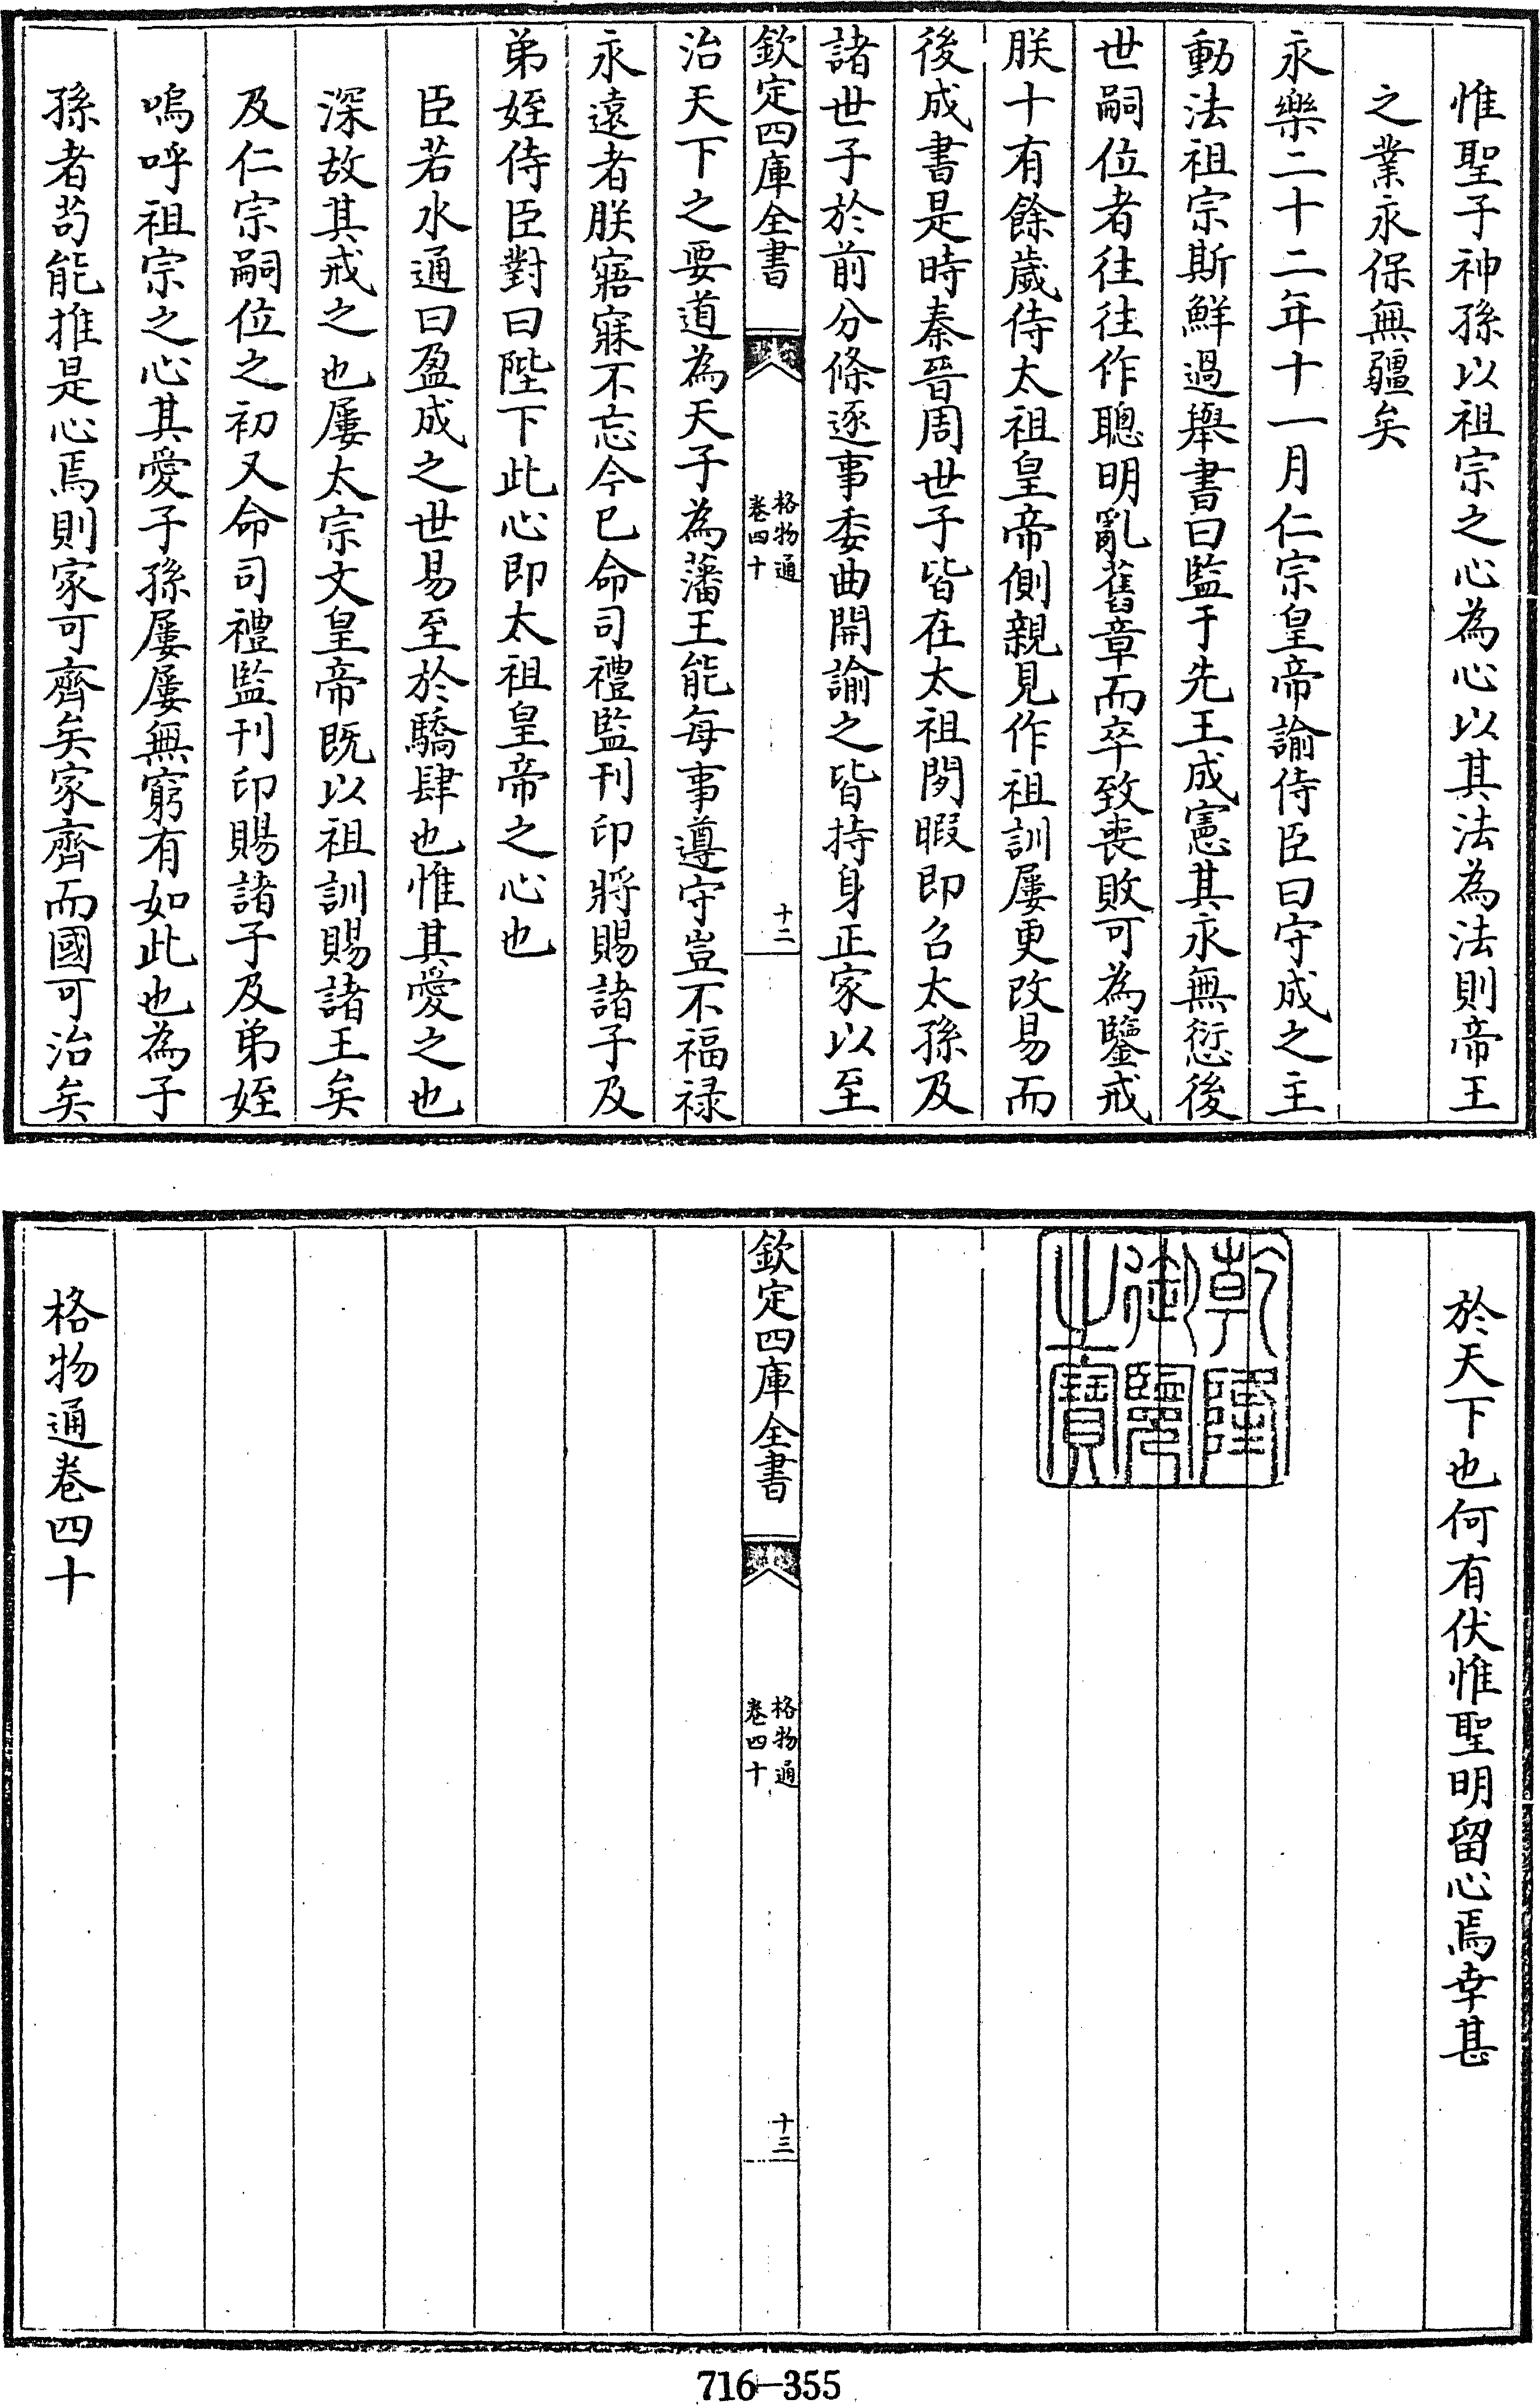 惟聖子神孫以祖宗之心為心以其法為法則帝王
之業永保無疆矣
永樂二十二年十一月仁宗皇帝諭侍臣曰守成之主
動法祖宗斯鮮過舉書曰監于先王成憲其永無愆後
世嗣位者往往作聰明亂舊章而卒致喪敗可為鑒戒
朕十有餘歲侍太祖皇帝側親見作祖訓屢更改易而
後成書是時秦晉周世子皆在太祖閒暇即召太孫及
諸世子於前分條逐事委曲開諭之皆持身正家以至
欽定四庫全書
格物通
卷四十
十二
治天下之要道為天子為藩王能每事遵守豈不福禄
永遠者朕寤寐不忘今已命司禮監刊印將賜諸子及
弟姪侍臣對曰陛下此心即太祖皇帝之心也
臣若水通曰盈成之世易至於驕肆也惟其愛之也
深故其戒之也屢太宗文皇帝既以祖訓賜諸王矣
及仁宗嗣位之初又命司禮監刊印賜諸子及弟姪
嗚呼祖宗之心其愛子孫屢屢無窮有如此也為子
孫者苟能推是心焉則家可齊矣家齊而國可治矣
於天下也何有伏惟聖明留心焉幸甚
乾隆
御覽
之寶
欽定四庫全書
格物通
卷四十
十三
格物通卷四十
716-355